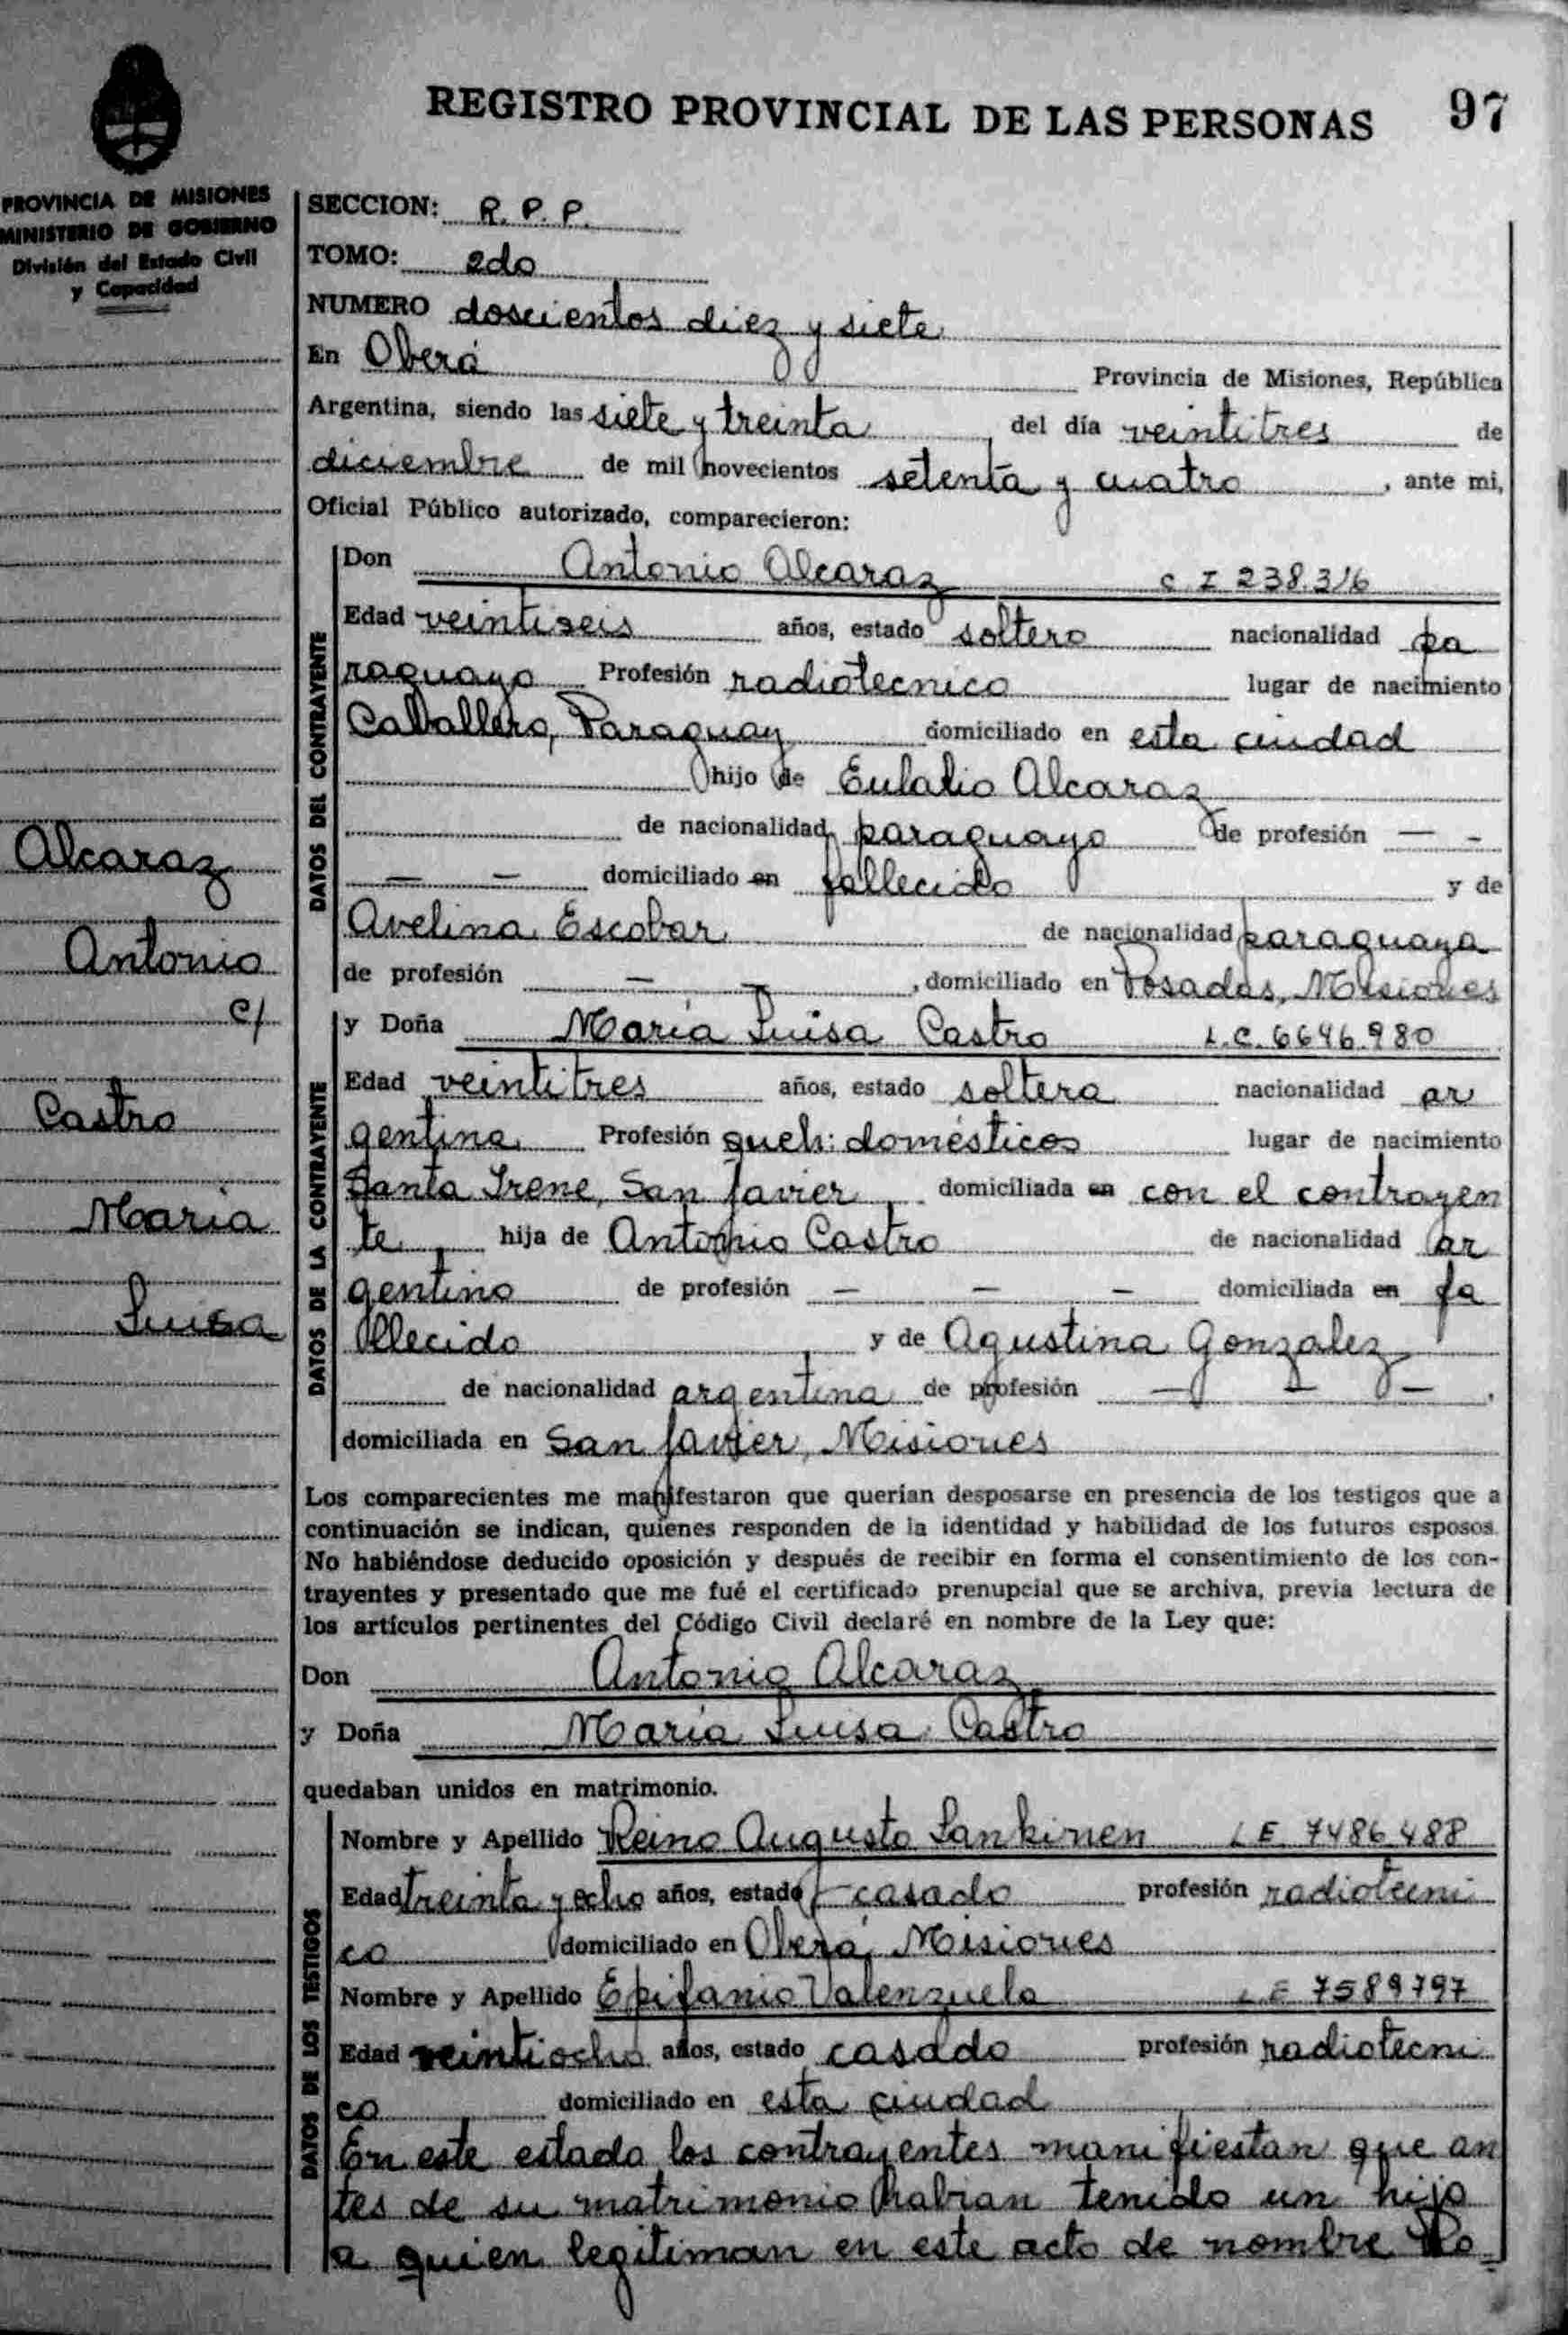 REGISTRO PROVINCIAL DE LAS PERSONAS 97
PROVINCIA DE MISIONES
MINISTERIO DE GOBIERNO
División del Estado Civil
y Capacidad
SECCION: R. P. P.
TOMO: 2do
NUMERO doscientos diez y siete
En Oberá Provincia de Misiones, República
Argentina, siendo las siete y treinta, del día veintitres de
diciembre de mil novecientos setenta y cuatro, ante mi,
Oficial Público autorizado, comparecieron:
DATOS DEL CONTRAYENTE
Don Antonio Alcaraz C I 238.316
Edad veintiseis años, estado soltero nacionalidad pa
raguayo Profesión radiotecnico lugar de nacimiento
Caballero, Paraguay domiciliado en esta ciudad
hijo de Eulalio Alcaraz
de nacionalidad paraguayo de profesión — -
— — domiciliado en fallecido y de
Avelina Escobar de nacionalidad paraguaya
de profesión — —, domiciliado en Posadas, Misiones
DATOS DE LA CONTRAYENTE
y Doña María Luisa Castro L.C. 6646.980
Edad veintitres años, estado soltera nacionalidad ar
gentina Profesión queh: domésticos lugar de nacimiento
Santa Irene, San Javier domiciliada en con el contrayen
te, hija de Antonio Castro de nacionalidad ar
gentino de profesión — — — domiciliada en fa
llecido y de Agustina Gonzalez
de nacionalidad argentina de profesión — — —.
domiciliada en San Javier, Misiones
Alcaraz
Antonio
c/
Castro
María
Luisa
Los comparecientes me manifestaron que querían desposarse en presencia de los testigos que a
continuación se indican, quienes responden de la identidad y habilidad de los futuros esposos.
No habiéndose deducido oposición y después de recibir en forma el consentimiento de los con-
trayentes y presentado que me fué el certificado prenupcial que se archiva, previa lectura de
los artículos pertinentes del Código Civil declaré en nombre de la Ley que:
Don Antonio Alcaraz
y Doña María Luisa Castro
quedaban unidos en matrimonio.
DATOS DE LOS TESTIGOS
Nombre y Apellido Reino Augusto Lankinen L E 7486488
Edad treinta y ocho años, estado casado profesión radiotecni
co domiciliado en Oberá, Misiones
Nombre y Apellido Epifanio Valenzuela L E 7589797
Edad veintiocho años, estado casado profesión radiotecni
co domiciliado en esta ciudad
En este estado los contrayentes manifiestan que an
tes de su matrimonio habian tenido un hijo
a quien legitiman en este acto de nombre Ro=